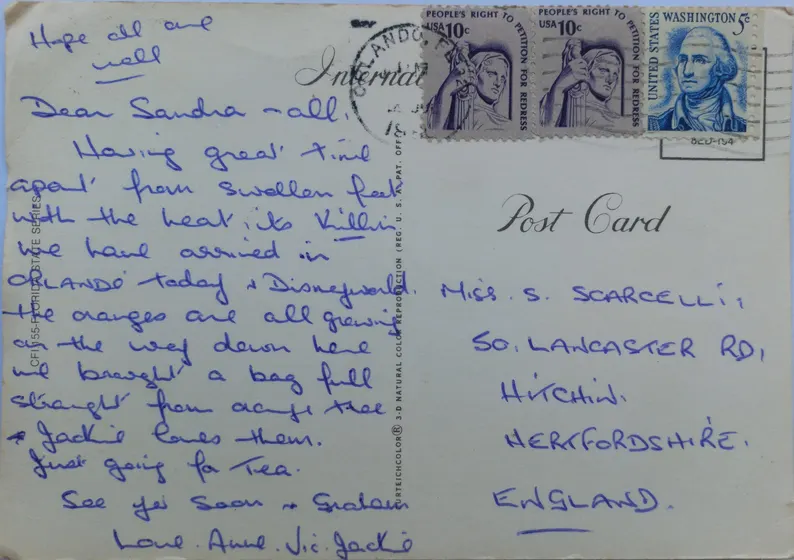 Hope all are
well
Dear Sandra - all,
Having great time
apart from swollen feet
with the heat, its killin
we have arrived in
ORLANDO today + Disneyworld.
the oranges are all growing
on the way down here
we brought a bag full
straight from orange tree
+ Jackie loves them.
Just going for Tea.
See yer soon + Graham
Love. Anne. Vic. Jackie
PEOPLE'S RIGHT TO PETITION FOR REDRESS
USA 10c
PEOPLE'S RIGHT TO PETITION FOR REDRESS
USA 10c
UNITED STATES WASHINGTON 5c
ORLANDO, FL
Post Card
MISS. S. SCARCELLI,
50, LANCASTER RD,
HITCHIN.
HERTFORDSHIRE.
ENGLAND.
FLORIDA STATE SERIES
CURTEICHCOLOR® 3-D NATURAL COLOR REPRODUCTION (REG. U. S. A. PAT. OFF